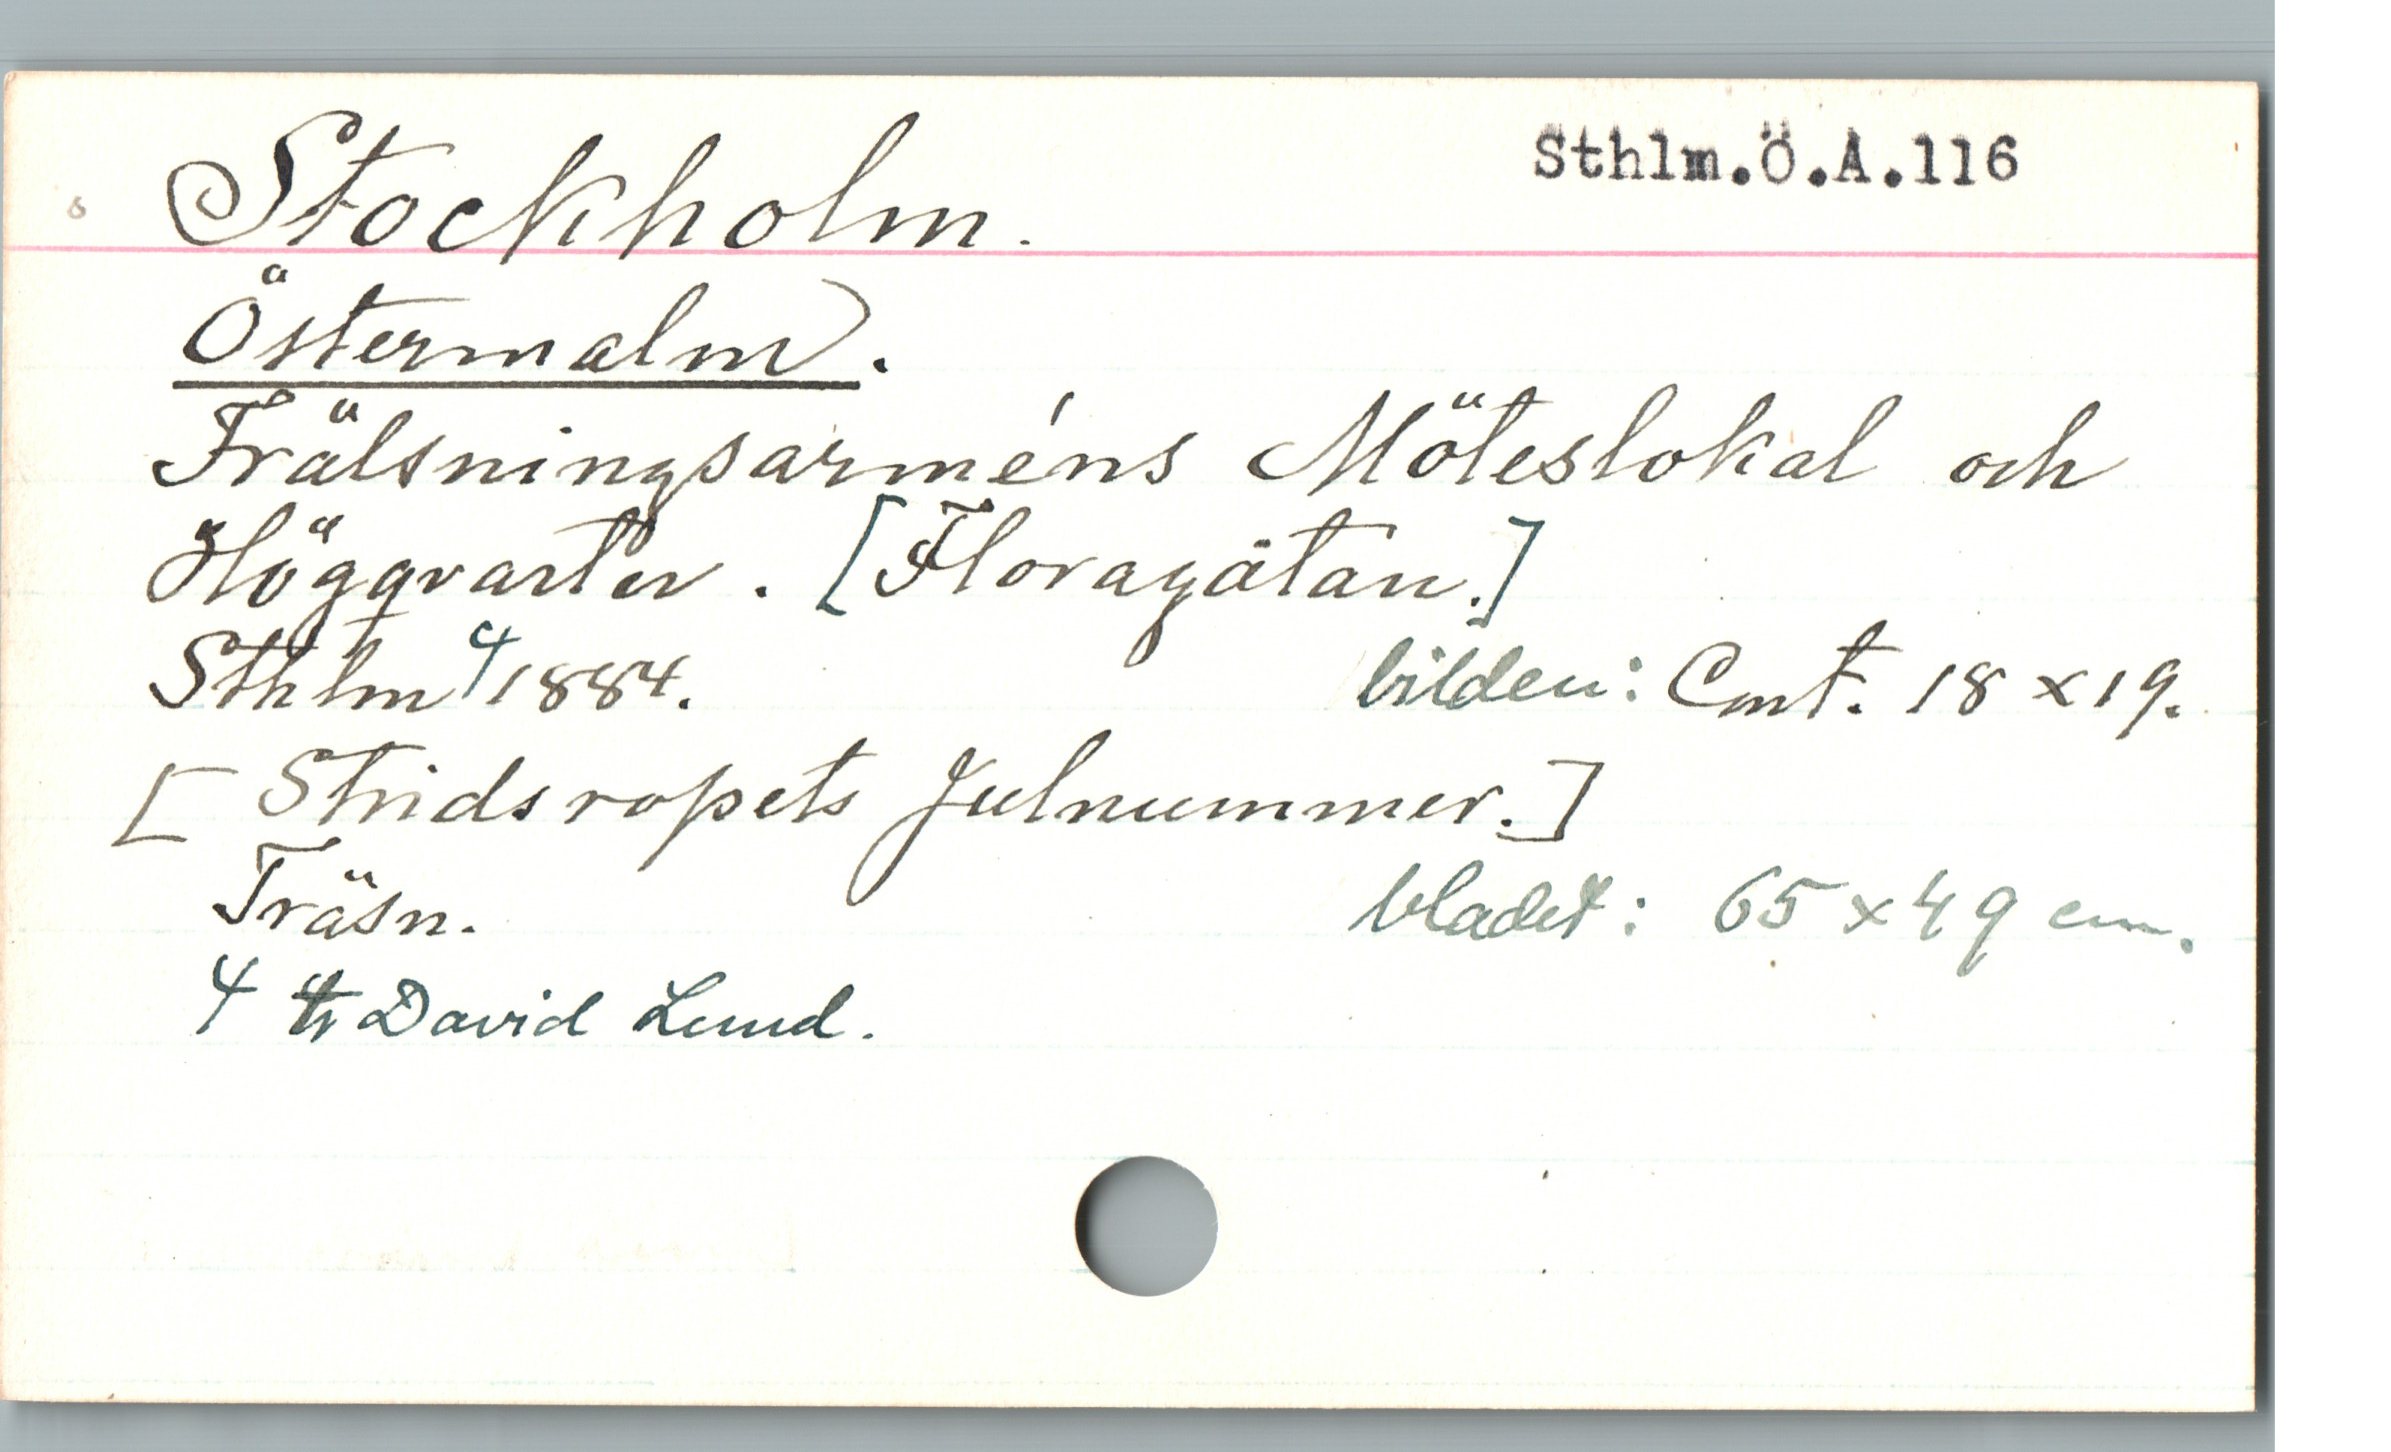 Stockholm.
Sthlm.Ö.A.116
Östermalm.
Frälsningsarméns Möteslokal och
Högqvarter. [Floragatan.]
Sthlm 4 1884.
bilden: Cmt. 18 x 19.
[Stridsropets Julnummer.]
Träsn.
bladet: 65 x 49 cm.
4 tr David Lund.